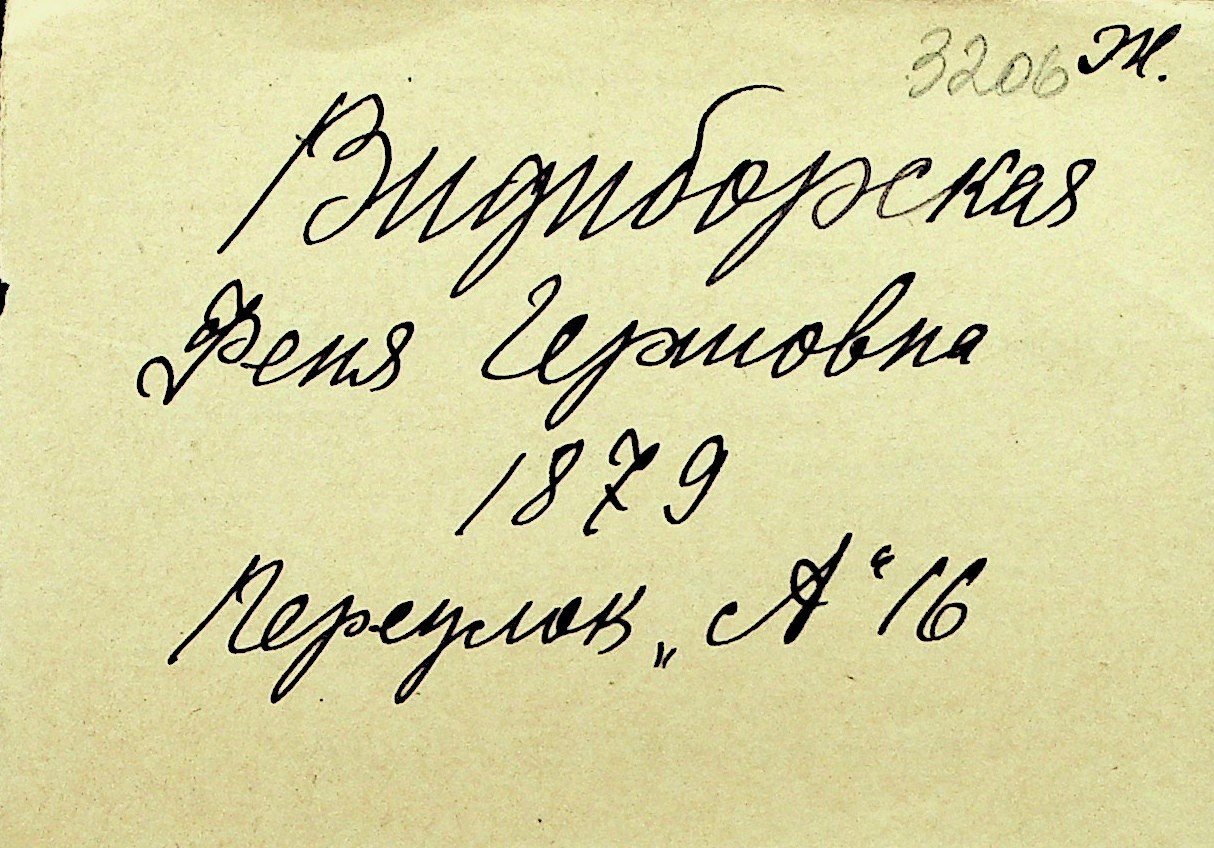 3206 Ж.
Видиборская
Феня Гершовна
1879
Переулок „А“ 16